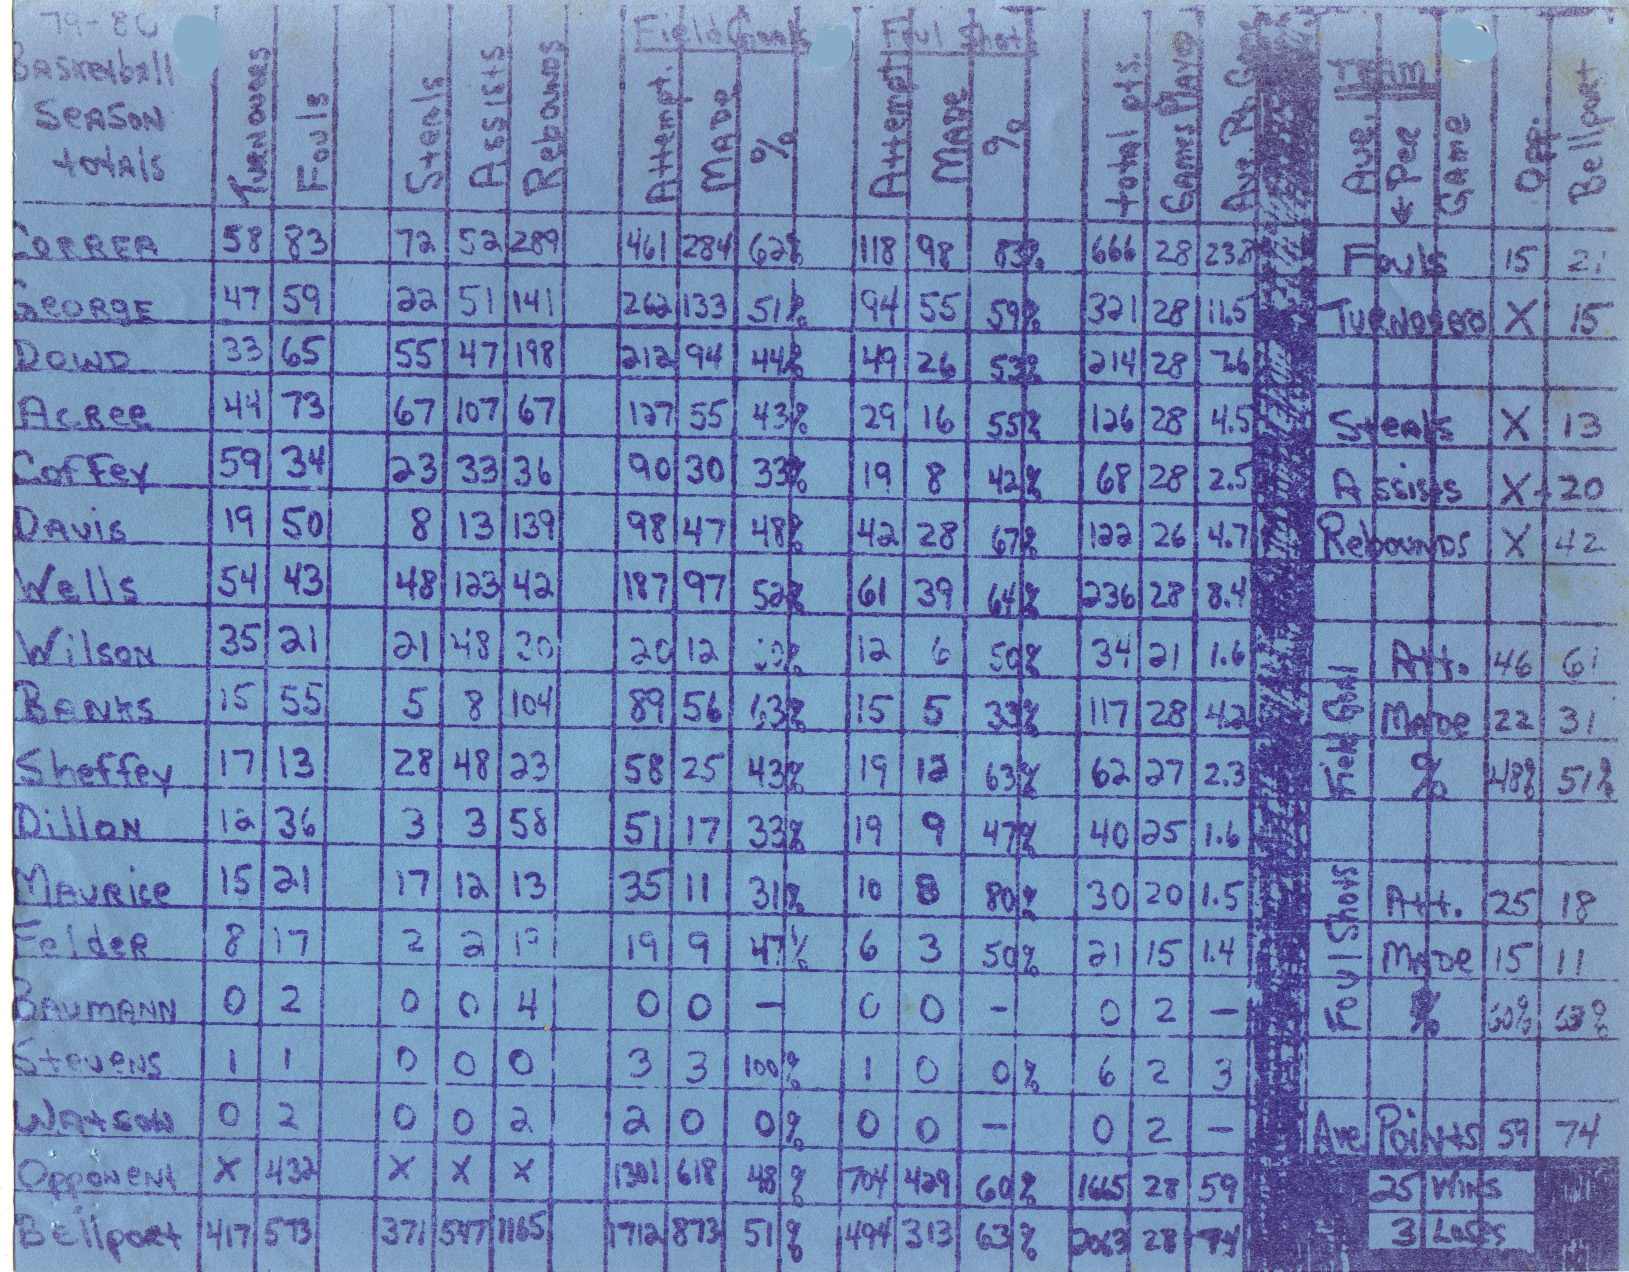 79-80
Basketball
Season
totals
Turnovers Fouls Steals Assists Rebounds
Field Goals Attempt. Made %
Foul Shots Attempt Made %
total pts. Games Played
CORREA 58 83 72 52 289 461 284 62% 118 98 83% 666 28 23.8
GEORGE 47 59 22 51 141 262 133 51% 94 55 59% 321 28 11.5
DOWD 33 65 55 47 198 212 94 44% 49 26 53% 214 28 7.6
Acree 44 73 67 107 67 127 55 43% 29 16 55% 126 28 4.5
Coffey 59 34 23 33 36 90 30 33% 19 8 42% 68 28 2.5
DAVIS 19 50 8 13 139 98 47 48% 42 28 67% 122 26 4.7
Wells 54 43 48 123 42 187 97 52% 61 39 64% 236 28 8.4
Wilson 35 21 21 48 30 20 12 12 6 50% 34 21 1.6
BANKS 15 55 5 8 104 89 56 63% 15 5 33% 117 28 4.2
Sheffey 17 13 28 48 23 58 25 43% 19 12 63% 62 27 2.3
Dillon 12 36 3 3 58 51 17 33% 19 9 47% 40 25 1.6
MAURICE 15 21 17 12 13 35 11 31% 10 8 80% 30 20 1.5
Felder 8 17 2 2 19 9 47% 6 3 50% 21 15 1.4
BAUMANN 0 2 0 0 4 0 0 – 0 0 – 0 2 –
Stevens 1 1 0 0 0 3 3 100% 1 0 0% 6 2 3
WATSON 0 2 0 0 2 2 0 0% 0 0 – 0 2 –
Opponent X 432 X X X 1301 618 48% 704 429 60% 1665 28 59
Bellport 417 573 371 547 1165 1712 873 51% 494 313 63% 2063 28 74
TEAM
Ave. ← Per Game Opp. Bellport
Fouls 15 21
Turnovers X 15
Steals X 13
Assists X 20
Rebounds X 42
Field Goal
Att. 46 61
Made 22 31
% 48% 51%
Foul Shots
Att. 25 18
Made 15 11
% 60% 63%
Ave Points 59 74
25 Wins
3 Loses